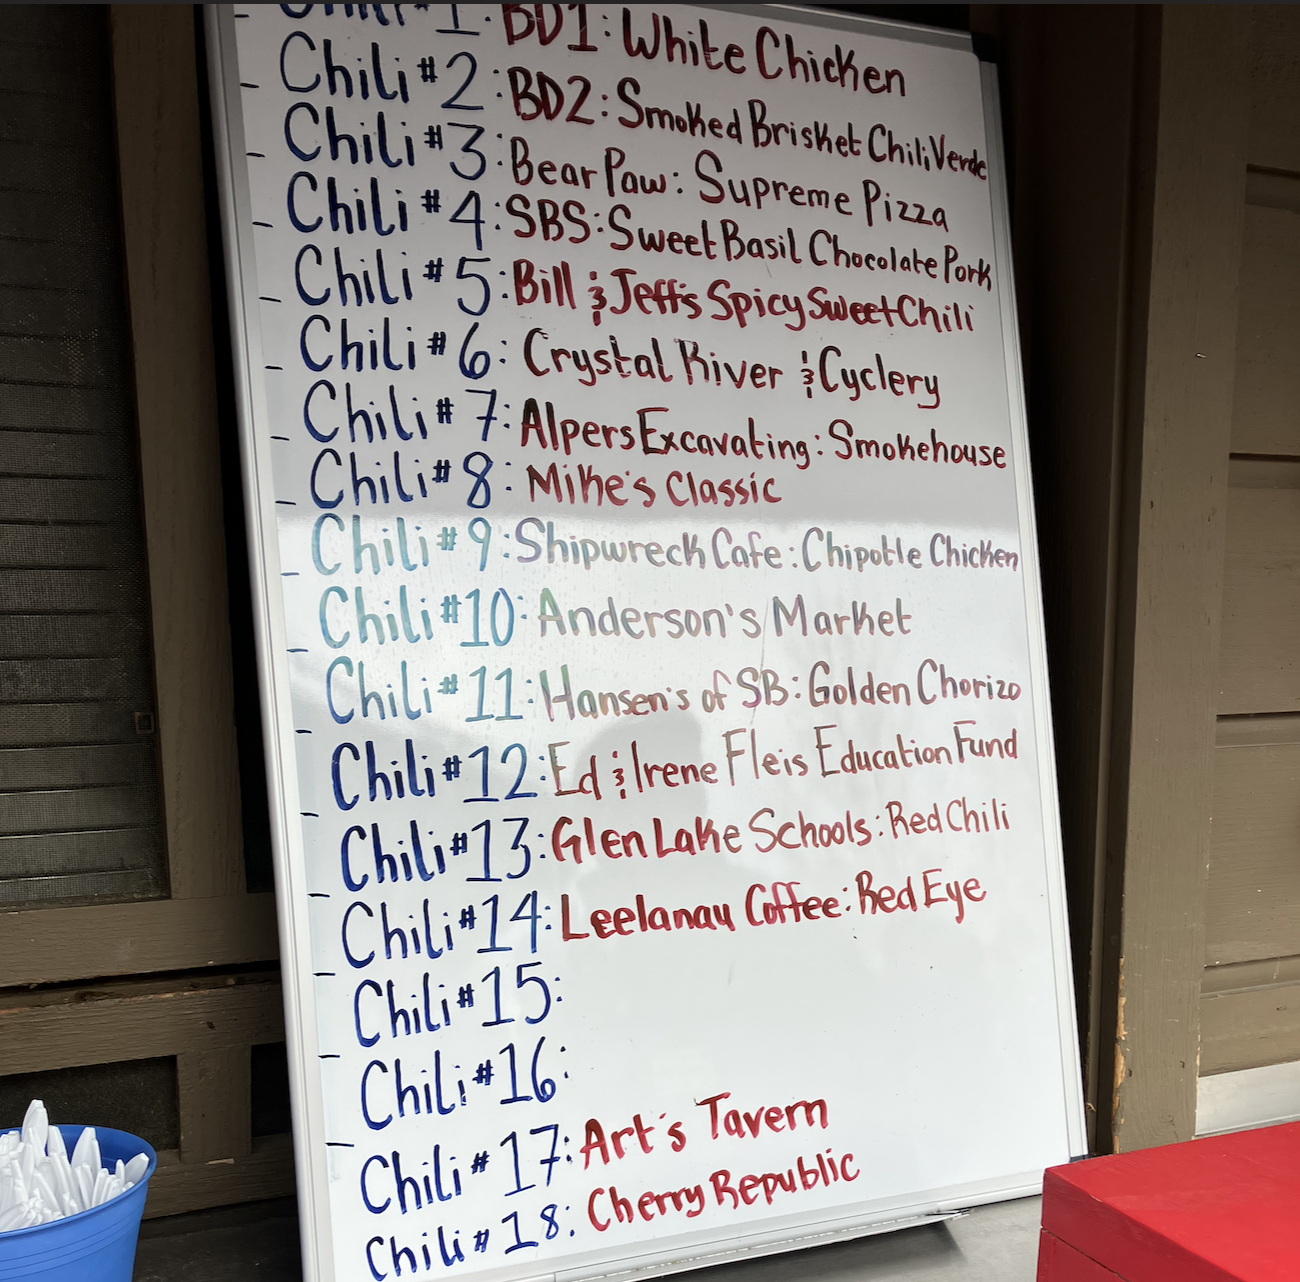 Chili #1: BD1: White Chicken
Chili #2: BD2: Smoked Brisket Chili Verde
Chili #3: Bear Paw: Supreme Pizza
Chili #4: SBS: Sweet Basil Chocolate Pork
Chili #5: Bill & Jeff's Spicy Sweet Chili
Chili #6: Crystal River & Cyclery
Chili #7: Alpers Excavating: Smokehouse
Chili #8: Mike's Classic
Chili #9: Shipwreck Cafe: Chipotle Chicken
Chili #10: Anderson's Market
Chili #11: Hansen's of SB: Golden Chorizo
Chili #12: Ed & Irene Fleis Education Fund
Chili #13: Glen Lake Schools: Red Chili
Chili #14: Leelanau Coffee: Red Eye
Chili #15:
Chili #16:
Chili #17: Art's Tavern
Chili #18: Cherry Republic